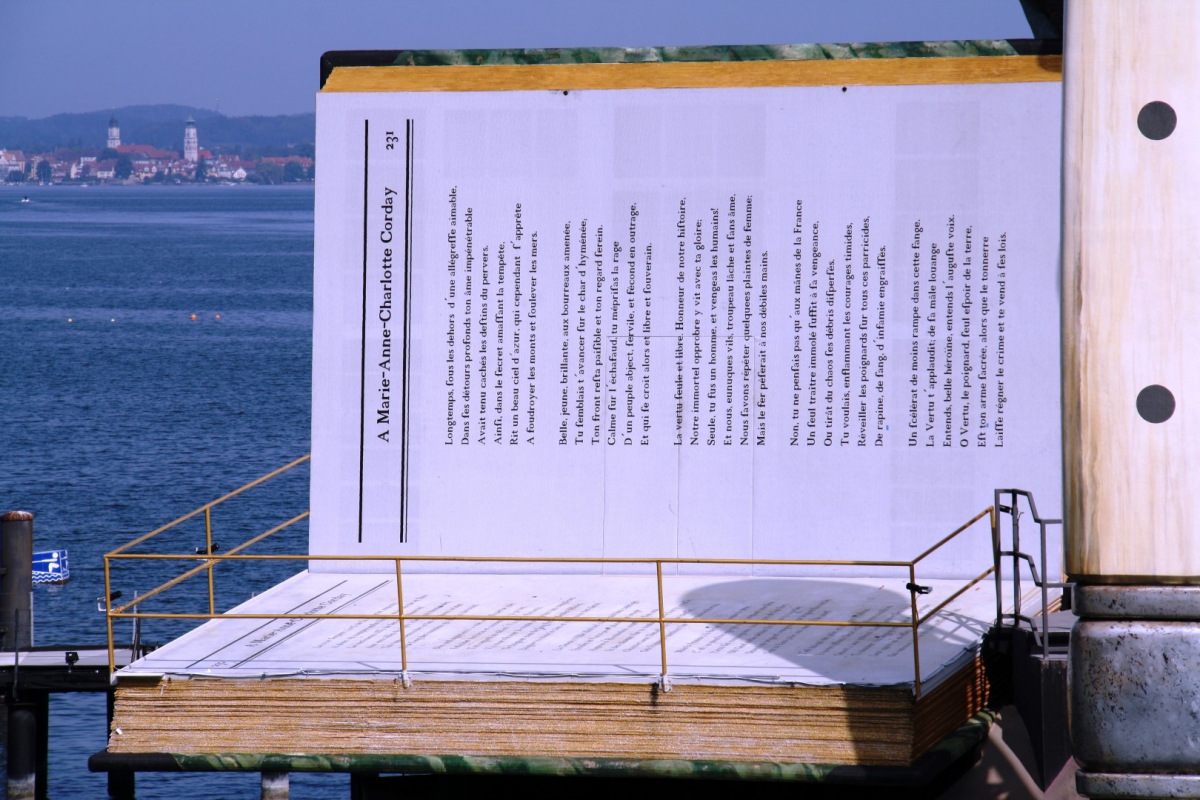 A Marie-Anne-Charlotte Corday 231
Longtemps, ſous les dehors d'une allégreſſe aimable,
Dans ſes détours profonds ton âme impénétrable
Avait tenu cachés les deſtins du pervers.
Ainſi, dans le ſecret amaſſant la tempête,
Rit un beau ciel d'azur, qui cependant ſ'apprête
A foudroyer les monts et ſoulever les mers.
Belle, jeune, brillante, aux bourreaux amenée,
Tu ſemblais t'avancer ſur le char d'hyménée;
Ton front reſta paiſible et ton regard ſerein.
Calme ſur l'échafaud, tu mépriſas la rage
D'un peuple abject, ſervile, et fécond en outrage,
Et qui ſe croit alors et libre et ſouverain.
La vertu ſeule eſt libre. Honneur de notre hiſtoire,
Notre immortel opprobre y vit avec ta gloire;
Seule, tu fus un homme, et vengeas les humains!
Et nous, eunuques vils, troupeau lâche et ſans âme,
Nous ſavons répéter quelquees plaintes de femme;
Mais le fer péſerait à nos débiles mains.
Non, tu ne penſais pas qu'aux mânes de la France
Un ſeul traître immolé ſuffit à ſa vengeance,
Ou tirât du chaos ſes débris diſperſés.
Tu voulais, enflammant les courages timides,
Réveiller les poignards ſur tous ces parricides,
De rapine, de ſang, d'infamie engraiſſés.
Un ſcélerat de moins rampe dans cette fange.
La Vertu t'applaudit; de ſa mâle louange
Entends, belle héroïne, entends l'auguſte voix.
O Vertu, le poignard, ſeul eſpoir de la terre,
Eſt ton arme ſacrée, alors que le tonnerre
Laiſſe régner le crime et te vend à ſes lois.